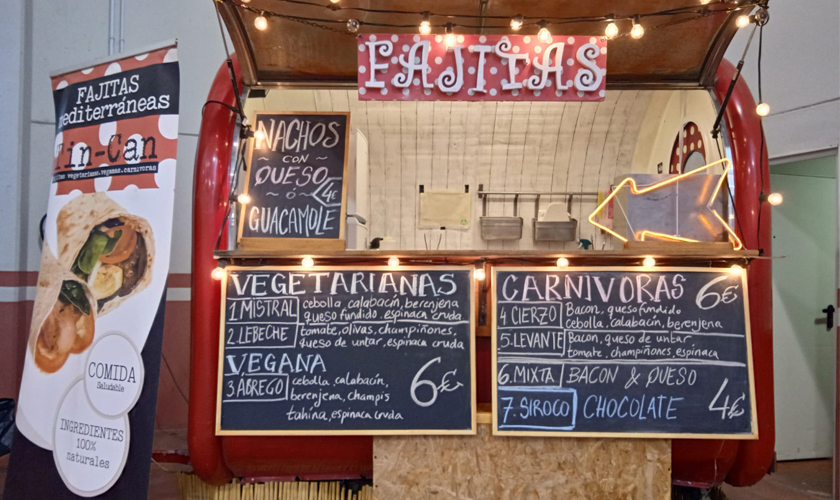 FAJITAS
mediterráneas
Tin-Can
vegetarianas.veganas.carnívoras
COMIDA
Saludable
INGREDIENTES
100%
naturales
FAJITAS
NACHOS
~ CON ~
QUESO 4€
~ Ó ~
GUACAMOLE
VEGETARIANAS
1 MISTRAL cebolla, calabacín, berenjena
queso fundido, espinaca cruda
2. LEBECHE tomate, olivas, champiñones,
queso de untar, espinaca cruda
VEGANA
3. ABREGO cebolla, calabacín,
berenjena, champis
tahina, espinaca cruda
6€
CARNIVORAS 6€
4 CIERZO Bacon, queso fundido
cebolla, calabacín, berenjena
5. LEVANTE Bacon, queso de untar
tomate, champiñones, espinaca
6. MIXTA BACON & QUESO
7. SIROCO CHOCOLATE 4€